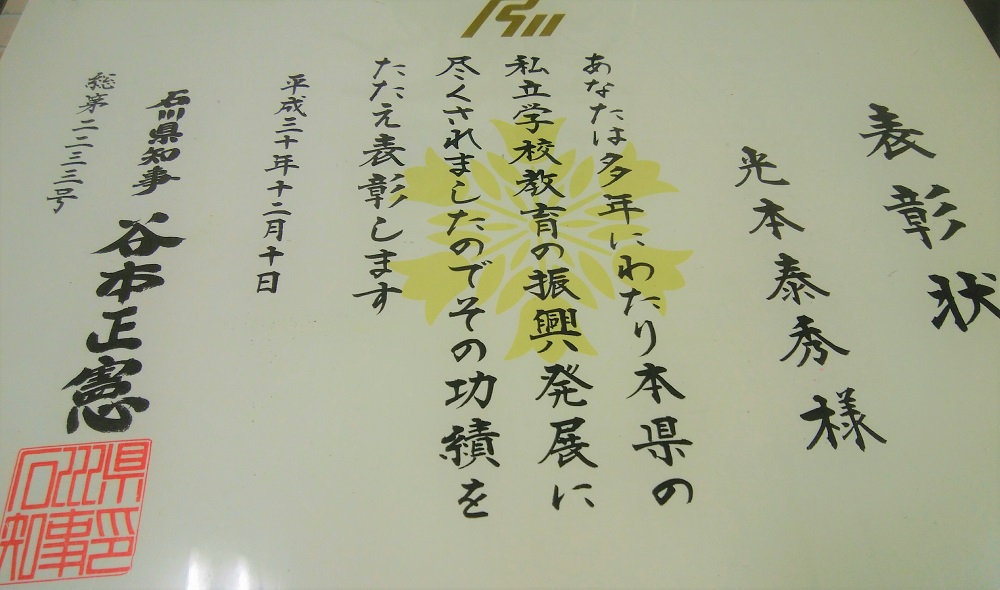 表彰状
光本泰秀様
あなたは多年にわたり本県の
私立学校教育の振興発展に
尽くされましたのでその功績を
たたえ表彰します
平成三十年十二月十日
石川県知事 谷本正憲
総第二二三三号
石川県知事印